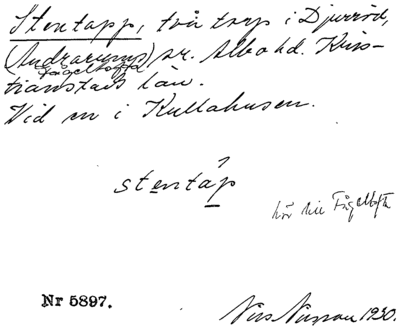 Stentapp, två torp i Djurröd,
(Andrarums) sn. Albo hd. Kris-
Fågeltofta
tianstads län.
Vid en i Kullahusen.
stentáp
hör till Fågeltofta
Nr 5897.
Nils Nilsson 1930.